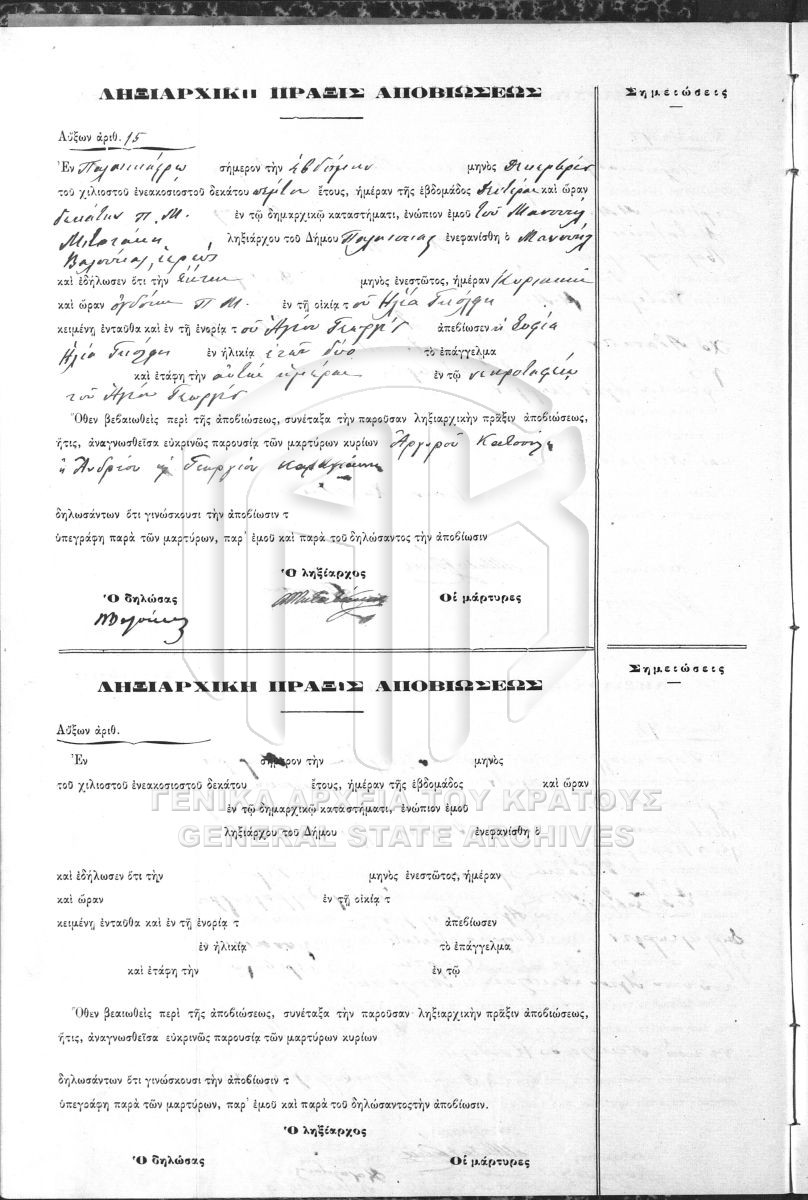 ΛΗΞΙΑΡΧΙΚΗ ΠΡΑΞΙΣ ΑΠΟΒΙΩΣΕΩΣ
Σημειώσεις
Αὔξων ἀριθ. 15
Ἐν Παλαικάστρω σήμερον τὴν ἑβδόμην μηνὸς Δεκεμβρίου
τοῦ χιλιοστοῦ ἐνεακοσιοστοῦ δεκάτου πέμπτου ἔτους, ἡμέραν τῆς ἑβδομάδος Δευτέραν καὶ ὥραν
δεκάτην π.μ. ἐν τῷ δημαρχικῷ καταστήματι, ἐνώπιον ἐμοῦ τοῦ Μανουὴλ
ληξιάρχου τοῦ Δήμου ἐνεφανίσθη ὁ Μανουὴλ
ἱερεὺς
καὶ ἐδήλωσεν ὅτι τὴν ἕκτην μηνὸς ἐνεστῶτος, ἡμέραν Κυριακὴν
καὶ ὥραν ὀγδόην π.μ. ἐν τῇ οἰκίᾳ τοῦ Ἠλία
κειμένῃ ἐνταῦθα καὶ ἐν τῇ ἐνορίᾳ τοῦ Ἁγίου Γεωργίου ἀπεβίωσεν ἡ Σοφία
Ἠλία ἐν ἡλικίᾳ ἐτῶν δύο τὸ ἐπάγγελμα
καὶ ἐτάφη τὴν αὐτὴν ἡμέραν ἐν τῷ νεκροταφείῳ
τοῦ Ἁγίου Γεωργίου
Ὅθεν βεβαιωθεὶς περὶ τῆς ἀποβιώσεως, συνέταξα τὴν παροῦσαν ληξιαρχικὴν πρᾶξιν ἀποβιώσεως,
ἥτις, ἀναγνωσθεῖσα εὐκρινῶς παρουσίᾳ τῶν μαρτύρων κυρίων Ἀργυροῦ
Ἀνδρέου Γεωργίου Καραγιάννη
δηλωσάντων ὅτι γινώσκουσι τὴν ἀποβίωσιν τ
ὑπεγράφη παρὰ τῶν μαρτύρων, παρ' ἐμοῦ καὶ παρὰ τοῦ δηλώσαντος τὴν ἀποβίωσιν
Ὁ ληξίαρχος
Ὁ δηλώσας Οἱ μάρτυρες
ΛΗΞΙΑΡΧΙΚΗ ΠΡΑΞΙΣ ΑΠΟΒΙΩΣΕΩΣ
Σημειώσεις
Αὔξων ἀριθ.
Ἐν σήμερον τὴν μηνὸς
τοῦ χιλιοστοῦ ἐνεακοσιοστοῦ δεκάτου ἔτους, ἡμέραν τῆς ἑβδομάδος καὶ ὥραν
ΓΕΝΙΚΑ ΑΡΧΕΙΑ ΤΟΥ ΚΡΑΤΟΥΣ
ἐν τῷ δημαρχικῷ καταστήματι, ἐνώπιον ἐμοῦ
GENERAL STATE ARCHIVES
ληξιάρχου τοῦ Δήμου ἐνεφανίσθη ὁ
καὶ ἐδήλωσεν ὅτι τὴν μηνὸς ἐνεστῶτος, ἡμέραν
καὶ ὥραν ἐν τῇ οἰκίᾳ τ
κειμένῃ ἐνταῦθα καὶ ἐν τῇ ἐνορίᾳ τ ἀπεβίωσεν
ἐν ἡλικίᾳ τὸ ἐπάγγελμα
καὶ ἐτάφη τὴν ἐν τῷ
Ὅθεν βεαιωθεὶς περὶ τῆς ἀποβιώσεως, συνέταξα τὴν παροῦσαν ληξιαρχικὴν πρᾶξιν ἀποβιώσεως,
ἥτις, ἀναγνωσθεῖσα εὐκρινῶς παρουσίᾳ τῶν μαρτύρων κυρίων
δηλωσάντων ὅτι γινώσκουσι τὴν ἀποβίωσιν τ
ὑπεγράφη παρὰ τῶν μαρτύρων, παρ' ἐμοῦ καὶ παρὰ τοῦ δηλώσαντος τὴν ἀποβίωσιν.
Ὁ ληξίαρχος
Ὁ δηλώσας Οἱ μάρτυρες